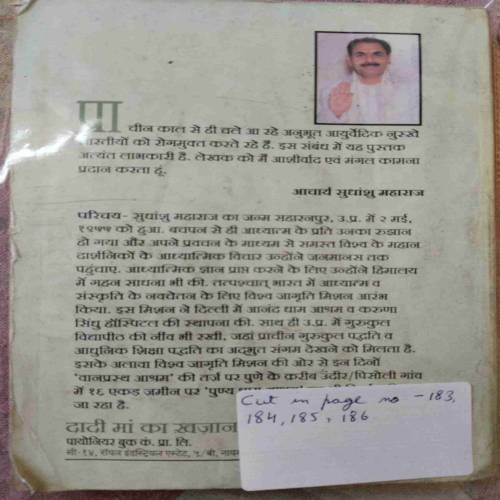 प्राचीन काल से ही चले आ रहे अनुभूत आयुर्वेदिक नुस्खे
भारतीयों को रोगमुक्त करते रहे हैं. इस संबंध में यह पुस्तक
अत्यंत लाभकारी है. लेखक को मैं आशीर्वाद एवं मंगल कामना
प्रदान करता हूं.
आचार्य सुधांशु महाराज
परिचय- सुधांशु महाराज का जन्म सहारनपुर, उ.प्र. में २ मई,
१९५५ को हुआ. बचपन से ही आध्यात्म के प्रति उनका रुझान
हो गया और अपने प्रवचन के माध्यम से समस्त विश्व के महान
दार्शनिकों के आध्यात्मिक विचार उन्होंने जनमानस तक
पहुंचाए. आध्यात्मिक ज्ञान प्राप्त करने के लिए उन्होंने हिमालय
में गहन साधना भी की. तत्पश्चात् भारत में आध्यात्म व
संस्कृति के नवचेतन के लिए विश्व जागृति मिशन आरंभ
किया. इस मिशन ने दिल्ली में आनंद धाम आश्रम व करुणा
सिंधु हॉस्पिटल की स्थापना की. साथ ही उ.प्र. में गुरुकुल
विद्यापीठ की नींव भी रखी, जहां प्राचीन गुरुकुल पद्धति व
आधुनिक शिक्षा पद्धति का अद्भुत संगम देखने को मिलता है.
इसके अलावा विश्व जागृति मिशन की ओर से इन दिनों
'वानप्रस्थ आश्रम' की तर्ज पर पुणे के करीब उंदीर/पिसोली गांव
में १६ एकड़ जमीन पर 'पुण्य
जा रहा है.
Cut in page no - 183,
184, 185, 186
दादी मां का खज़ान
पायोनियर बुक कं. प्रा. लि.
सी-१४, रॉयल इंडस्ट्रियल एस्टेट, ५/बी, नायग